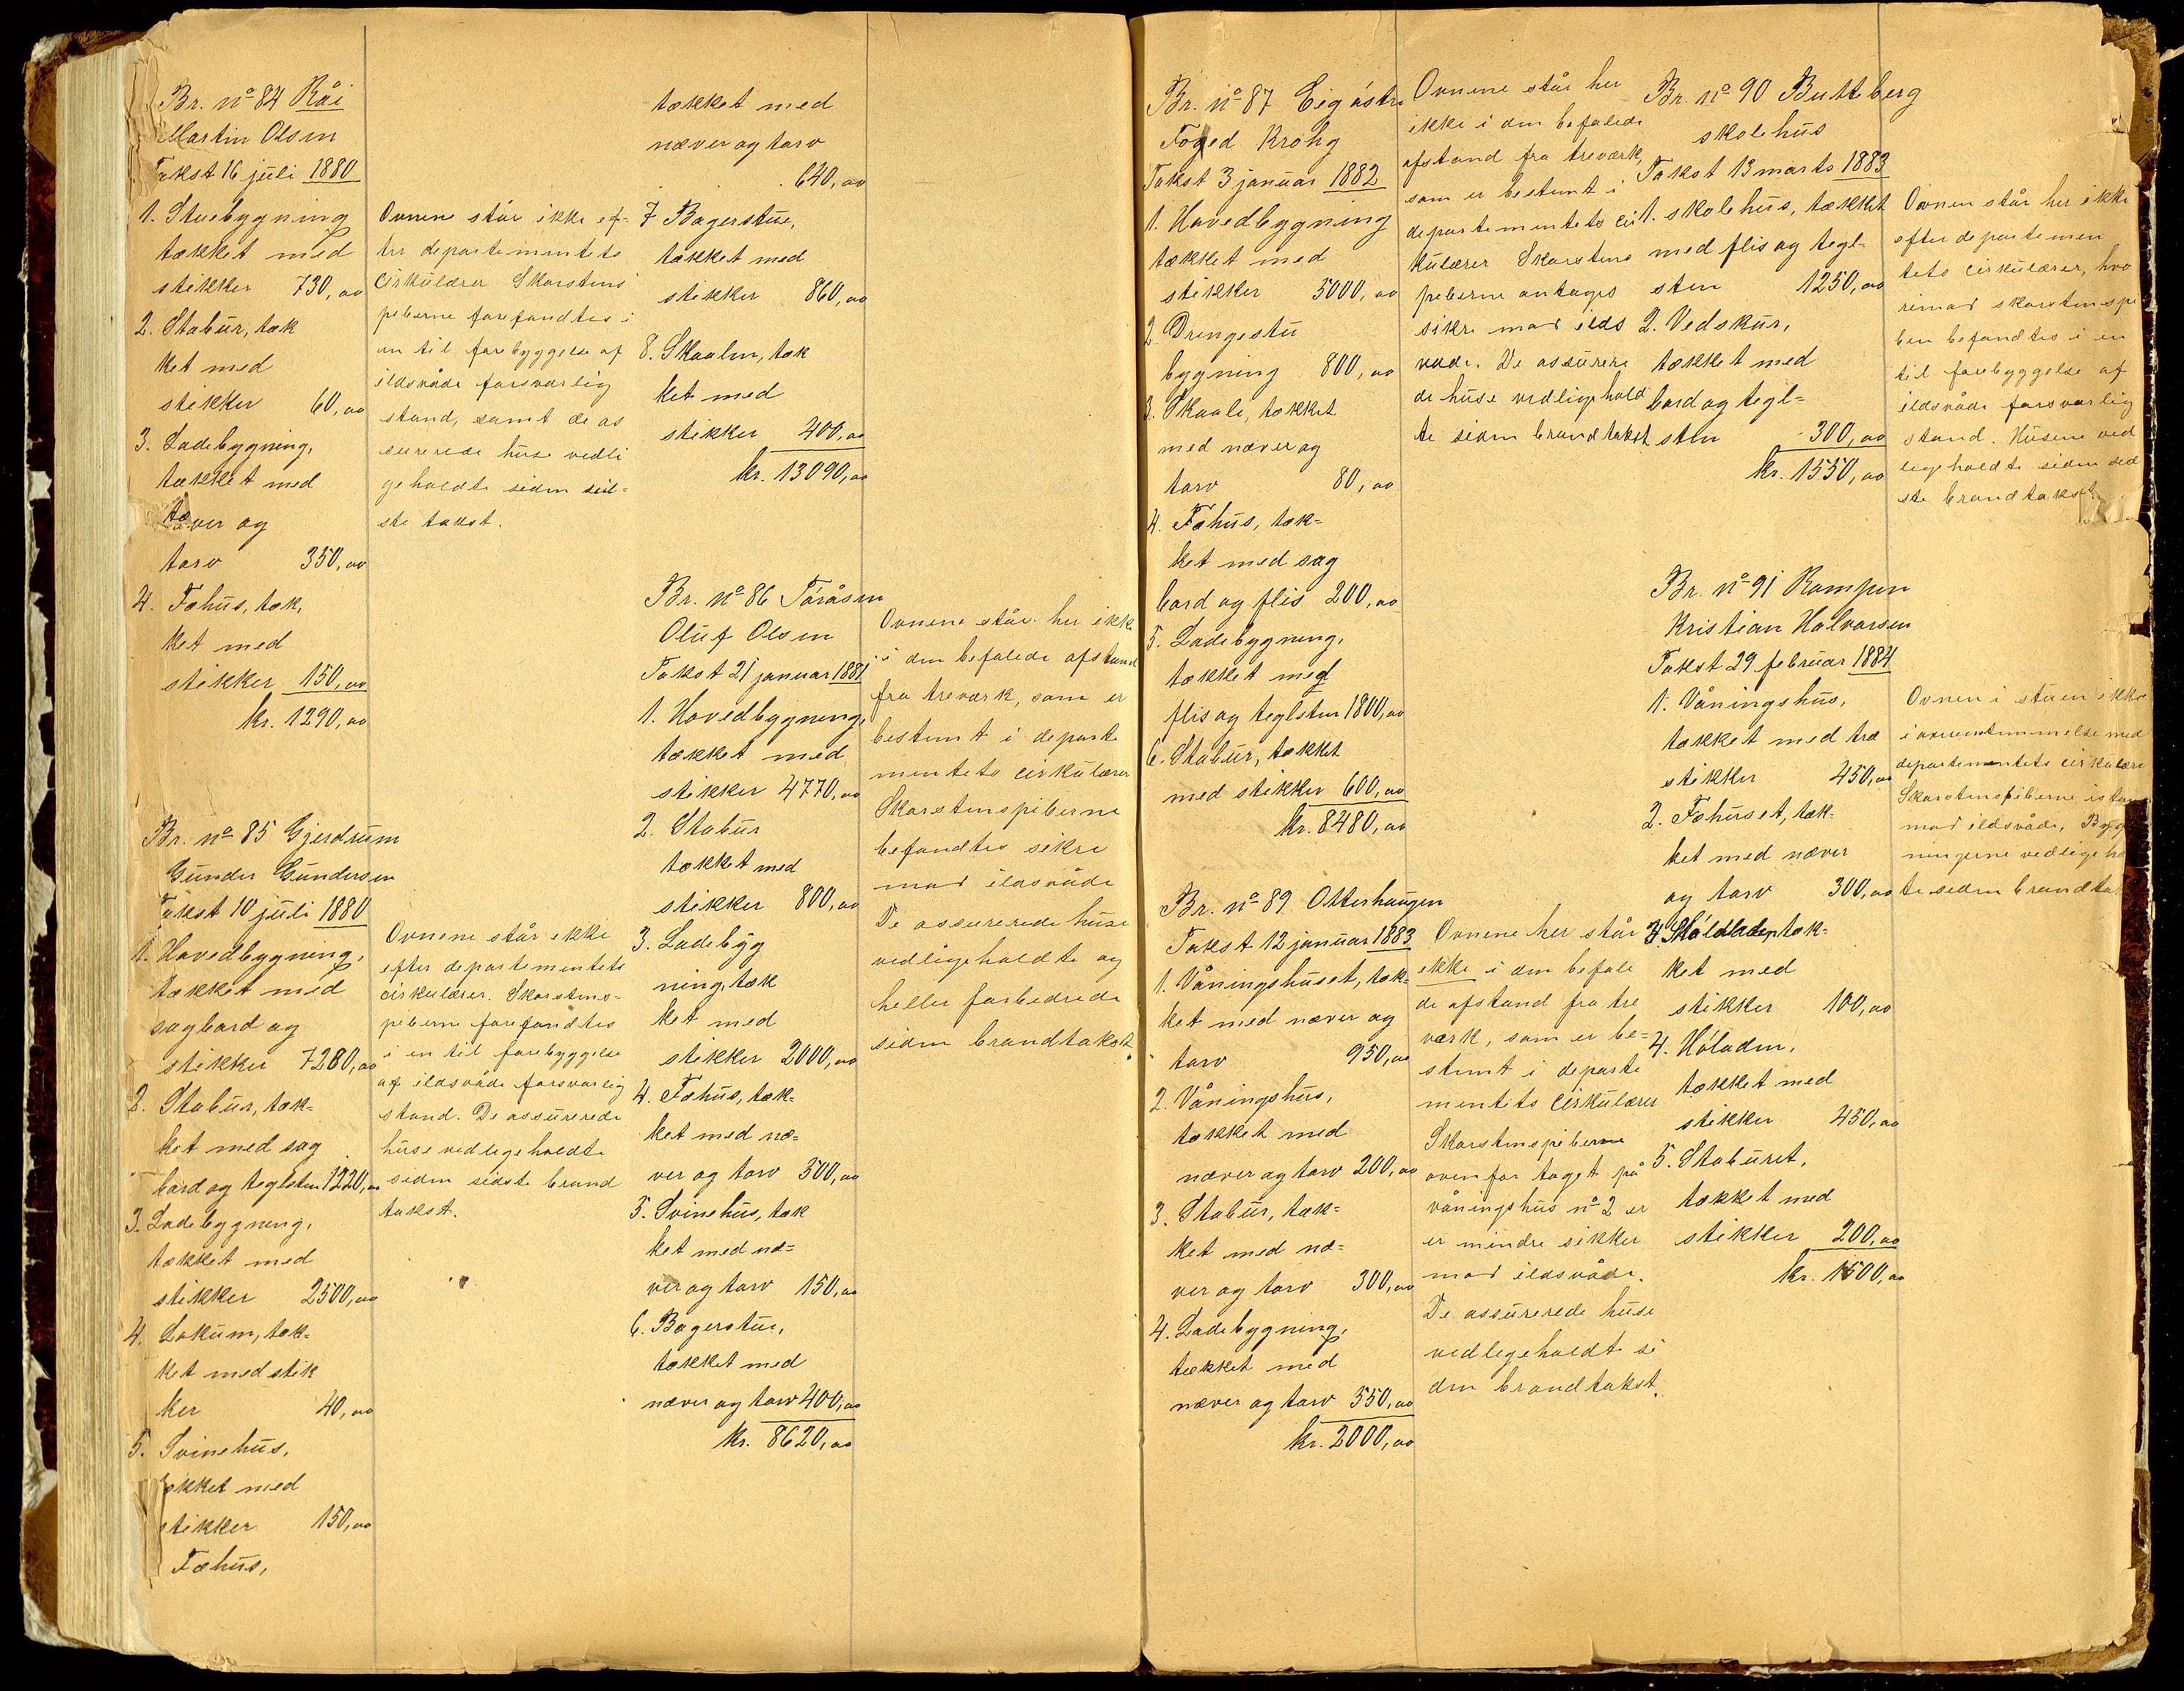 Br. nº 84 Råi
Martin Olsen
Takst 16 juli 1880
1. Stuebygning
tækket med
stikker 730,oo
2. Stabur, tæk
ket med
stikker 60,oo
3. Ladebygning,
tækket med
næver og
torv 350,oo
4. Fæhus, tæk,
ket med
stikker 150,oo
kr. 1290,oo
Ovnene står ikke ef-
ter departementets
cirkulærer Skorstens
peberne forefandtes i
en til forebyggelse af
ildsvåde forsvarlig
stand, samt de as
surerede huse vedli
geholdte siden sid-
ste takst.
Br. nº 85 Gjerdrum
Gunder Gundersen
Takst 10 juli 1880
1. Hovedbygning,
tækket med
sagbord og
stikker 7280,oo
2. Stabur, tæk-
ket med sag
bord og teglsten 1220,oo
3. Ladebygning,
tækket med
stikker 2500,oo
4. Lokum, tæk-
ket med stik
ker 40,oo
5. Svinehus,
tækket med
stikker 150,oo
Fæhus,
Ovnene står ikke
efter departementets
cirkulærer. Skorstens-
peberne forefandtes
i en til forebyggelse
af ildsvåde forsvarlig
stand. De assurerede
huse vedligeholdte
siden sidste brand
takst.
tækket med
næver og torv
640,oo
7 Bagerstue,
tækket med
stikker 860,oo
8. Skaalen, tæk
ket med
stikker 400,oo
kr. 13090,oo
Br. nº 86 Toråsen
Oluf Olsen
Takst 21 januar 1881
1. Hovedbygning,
tækket med
stikker 4770,oo
2. Stabur
tækket med
stikker 800,oo
3. Ladebyg
ning, tæk
ket med
stikker 2000,oo
4. Fæhus, tæk-
ket med næ-
ver og torv 500,oo
5. Svinehus, tæk
ket med næ-
ver og torv 150,oo
6. Bagerstue,
tækket med
næver og torv 400,oo
kr. 8620,oo
Ovnene står her ikke
i den befalede afstand
fra treværk, som er
bestemt i departe
mentets cirkulærer
Skorstenspeberne
befandtes sikre
mod ildsvåde
De assurerede huse
vedligeholdte og
heller forbedrede
siden brandtakst.
Br. nº 87 Eigóstre
Foged Krohg
Takst 3 januar 1882
1. Hovedbygning
tækket med
stikker 5000,oo
2. Drengestu
bygning 800,oo
3. Skaale, tækket
med næver og
torv 80,oo
4. Fæhus, tæk-
ket med sag
bord og flis 200,oo
5. Ladebygning,
tækket med
flis og teglsten 1800,oo
6. Stabur, tækket
med stikker 600,oo
kr. 8480,oo
Ovnene står her
ikke i den befalede
afstand fra treværk,
som er bestemt i
departementets cir
kulærer Skorstens
peberne antages
sikre mod ilds
vade. De assurere
de huse vedligehold
te siden brandtakst
Br. nº 89 Otterhaugen
Takst 12 januar 1883
1. Våningshuset, tæk-
ket med næver og
torv 950,oo
2. Våningshus,
tækket med
næver og torv 200,oo
3. Stabur, tæk-
ket med næ-
ver og torv 300,oo
4. Ladebygning,
tækket med
næver og torv 550,oo
kr. 2000,oo
Ovnene her står
ikke i den befale
de afstand fra tre
værk, som er be-
stemt i departe
mentets cirkulærer
Skorstenspeberne
ovenfor taget på
våningshus nº 2 er
er mindre sikker
mod ildsvåde.
De assurerede huse
vedligeholdte si
den brandtakst.
Br. nº 90 Buttberg
skolehus
Takst 13 marts 1883
1. skolehus, tækket
med flis og tegl-
sten 1250,oo
2. Vedskur,
tækket med
bord og tegl-
sten 300,oo
kr. 1550,oo
Ovnen står her ikke
efter departemen
tets cirkulærer, hvo
rimod skorstenspi
ben befandtes i en
til forebyggelse af
ildsvåde forsvarlig
stand. Husene ved
ligeholdte siden sid
ste brandtakst
Br. nº 91 Rompen
Kristian Halvorsen
Takst 29 februar 1884
1. Våningshus,
tækket med træ
stikker 450,oo
2. Fæhuset, tæk-
ket med næver
og torv 300,oo
3. tæk-
ket med
stikker 100,oo
4. Höladen,
tækket med
stikker 450,oo
5. Staburet,
tækket med
stikker 200,oo
kr. 1500,oo
Ovnen i stuen ikke
i overenstemmelse med
departementets cirkulære
Skorstenspeberne
mod ildsvåde, Byg
ningerne vedligeho
te siden brandta